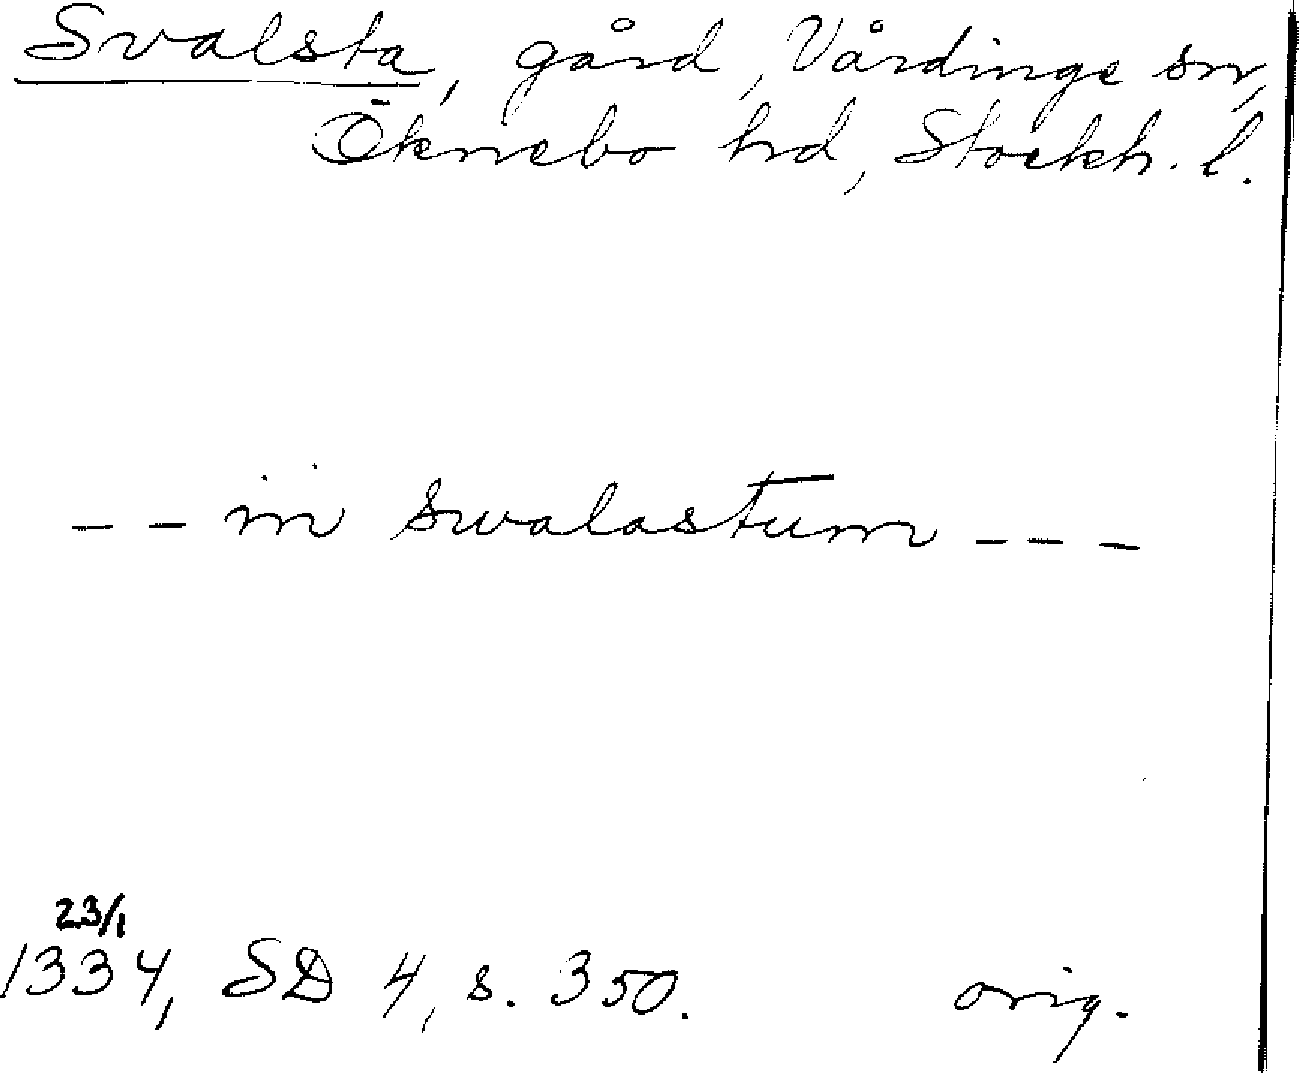 Svalsta, gård, Vårdinge sn,
Öknebo hd, Stockh. l.
-- in swalastum ---
23/1
1334, SD 4, s. 350. orig.